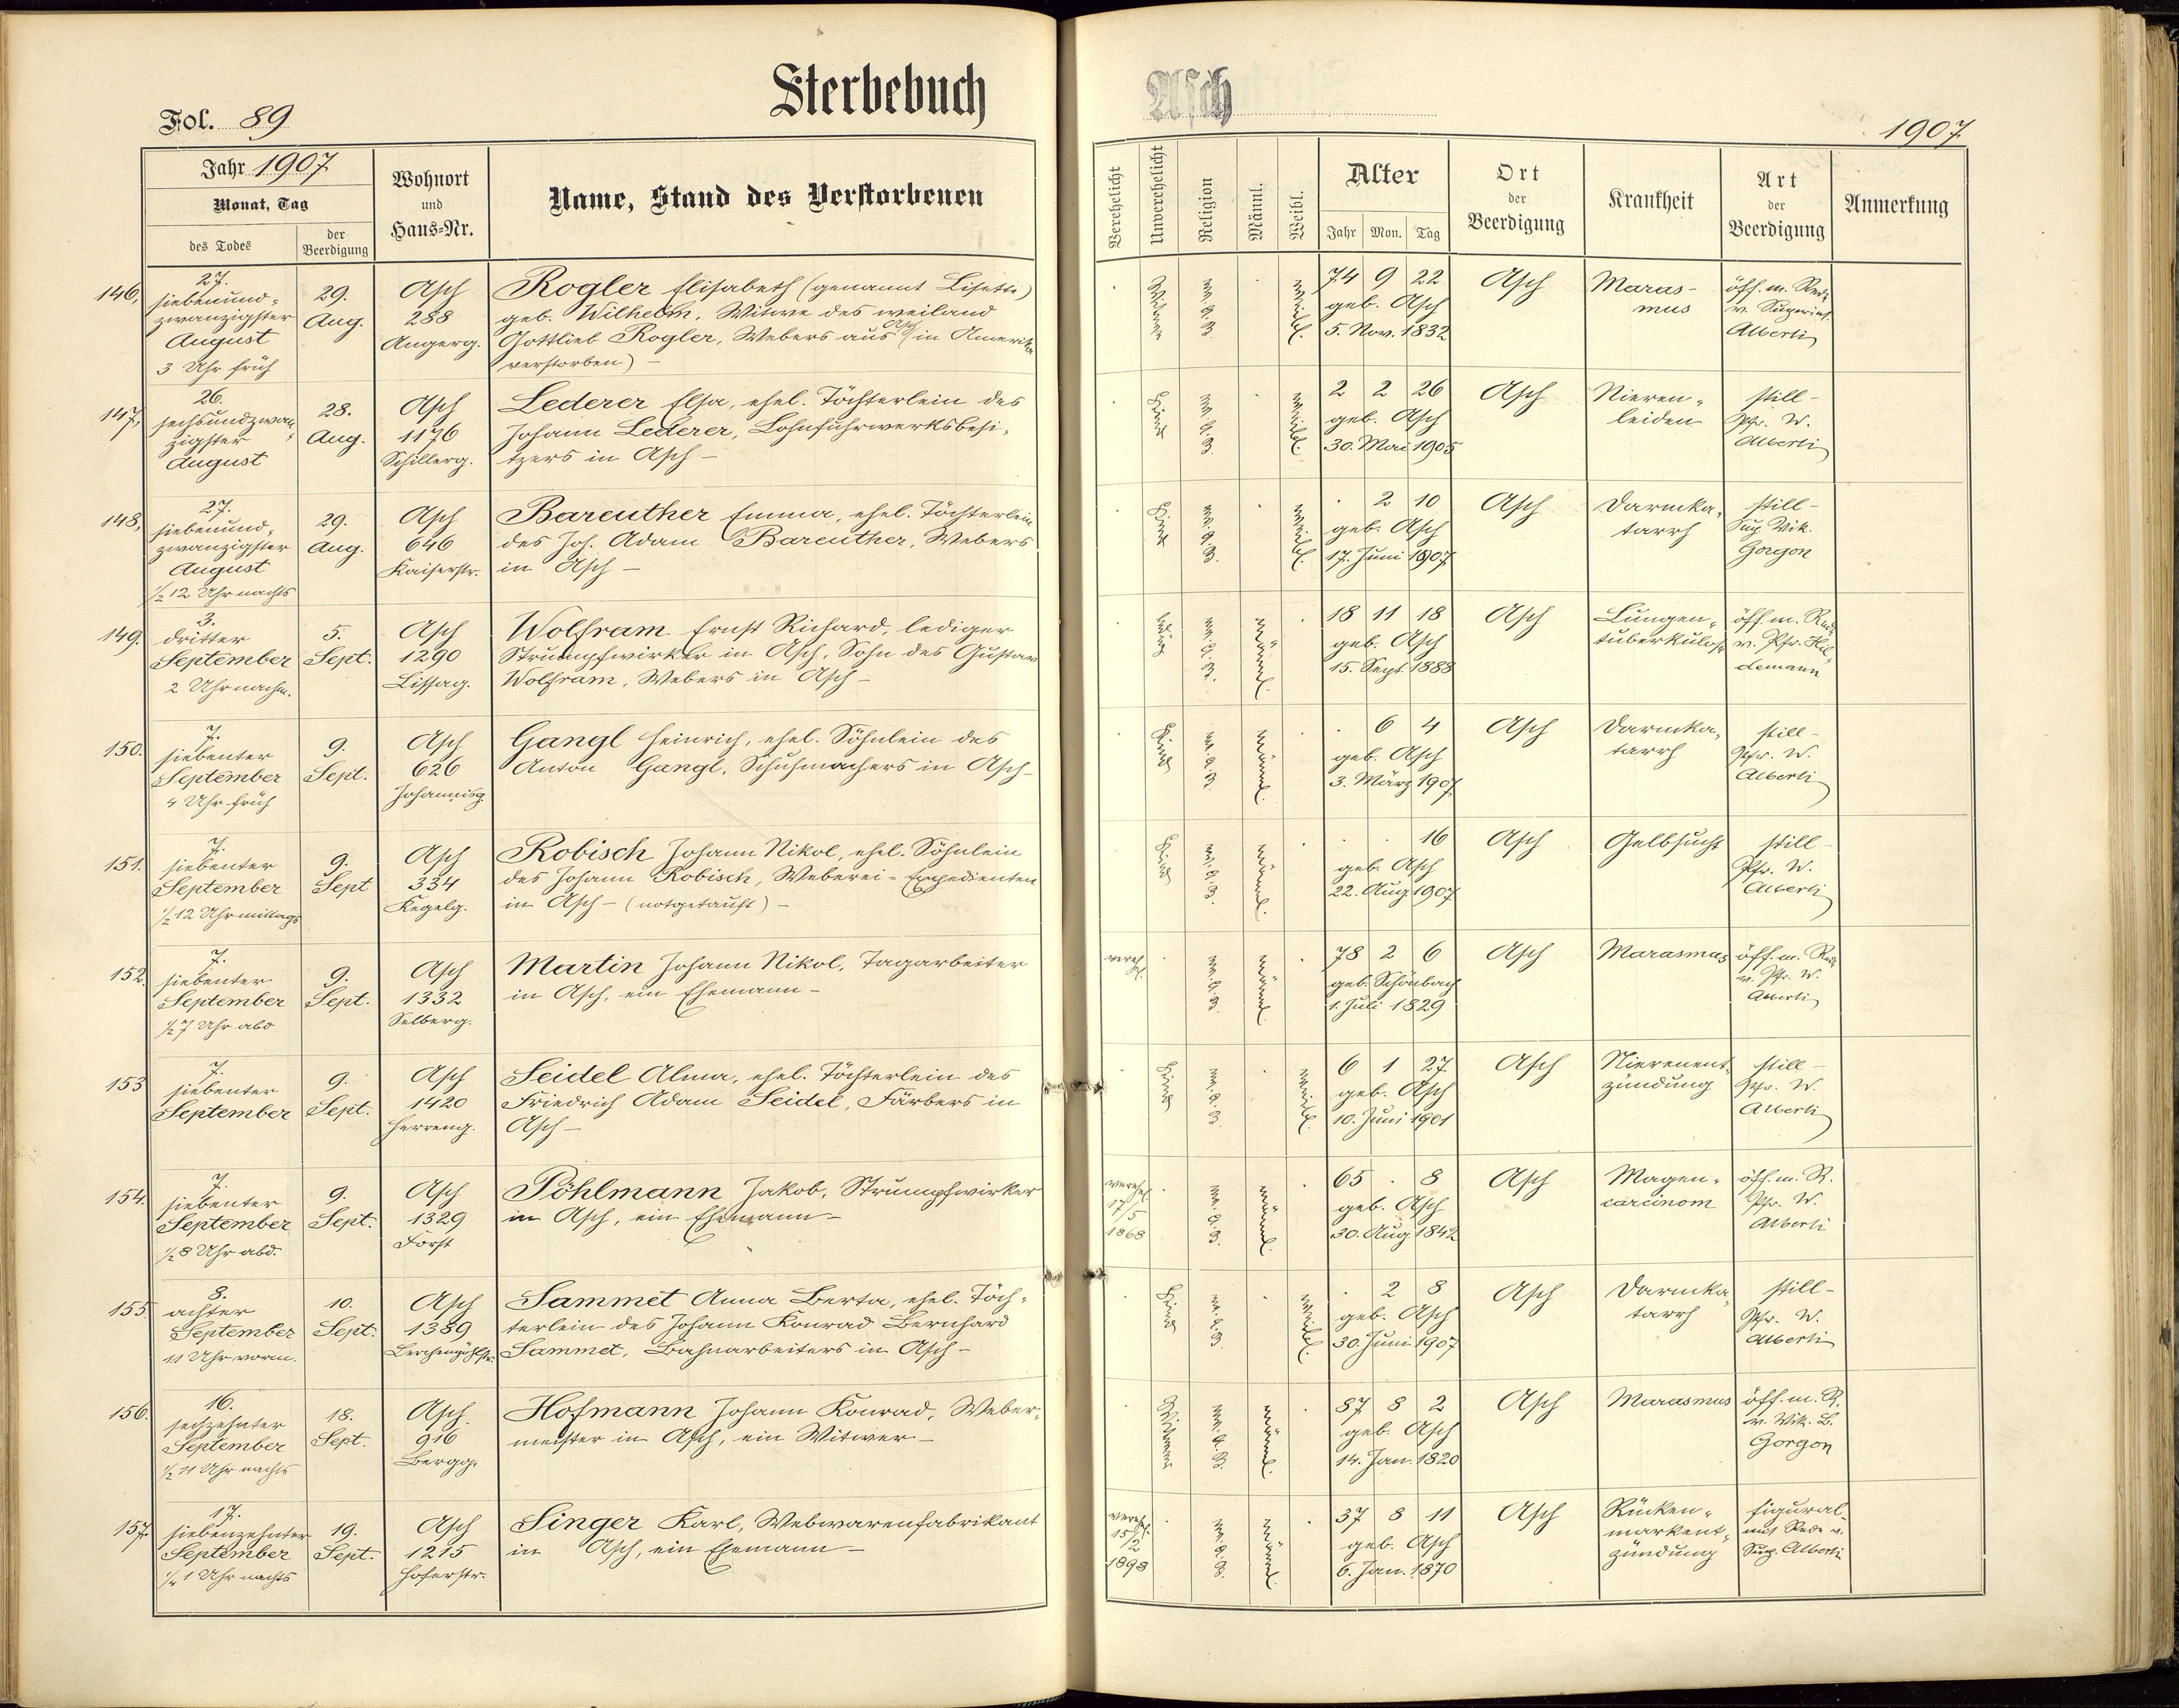 Sterbebuch
Asch
Fol. 89
1907
Jahr 1907
Monat, Tag
des Todes
der Beerdigung
Wohnort
und
Haus-Nr.
Name, Stand des Verstorbenen
Verehelicht
Unverehelicht
Religion
Männl.
Weibl.
Alter
Jahr Mon. Tag
Ort
der
Beerdigung
Krankheit
Art
der
Beerdigung
Anmerkung
146.
27.
siebenund-
zwanzigster
August
3 Uhr früh
29.
Aug.
Asch
288
Angerg.
Rogler Elisabeth (genannt Lisette)
geb. Wilhelm, Witwe des weiland
Gottlieb Rogler, Webers aus Asch (in Amerika
verstorben) –
Witwe
ev. A. B.
weibl.
74 9 22
geb. Asch
5. Nov. 1832
Asch
Maras-
mus
öff. m. Rede
v. Superint.
Alberti
147.
26.
sechsundzwan-
zigster
August
28.
Aug.
Asch
1176
Schillerg.
Lederer Elsa, ehel. Töchterlein des
Johann Lederer, Lohnfuhrwerksbesi-
tzers in Asch –
Kind
ev. A. B.
weibl.
2 2 26
geb. Asch
30. Mai 1905
Asch
Nieren-
leiden
still –
Pfr. W.
Alberti
148.
27.
siebenund-
zwanzigster
August
½ 12 Uhr nachts
29.
Aug.
Asch
646
Kaiserstr.
Bareuther Emma, ehel. Töchterlein
des Joh. Adam Bareuther, Webers
in Asch –
Kind
ev. A. B.
weibl.
2 10
geb. Asch
17. Juni 1907
Asch
Darmka-
tarrh
still –
Vik.
Gorgon
149.
3.
dritter
September
2 Uhr nachm.
5.
Sept.
Asch
1290
Lissag.
Wolfram Ernst Richard, lediger
Strumpfwirker in Asch, Sohn des Gustav
Wolfram, Webers in Asch –
ledig
ev. A. B.
männl.
18 11 18
geb. Asch
15. Sept. 1888
Asch
Lungen-
tuberkulose
öff. m. Rede
v. Pfr. Hil-
demann
150.
7.
siebenter
September
4 Uhr früh
9.
Sept.
Asch
626
Johannisg.
Gangl Heinrich, ehel. Söhnlein des
Anton Gangl, Schuhmachers in Asch –
Kind
ev. A. B.
männl.
6 4
geb. Asch
3. März 1907
Asch
Darmka-
tarrh
still –
Pfr. W.
Alberti
151.
7.
siebenter
September
½ 12 Uhr mittags
9.
Sept
Asch
334
Kegelg.
Robisch Johann Nikol, ehel. Söhnlein
des Johann Robisch, Weberei-Expedienten
in Asch – (notgetauft) –
Kind
ev. A. B.
männl.
16
geb. Asch
22. Aug. 1907
Asch
Gelbsucht
still –
Pfr. W.
Alberti
152.
7.
siebenter
September
½ 7 Uhr abd
9.
Sept.
Asch
1332
Selberg.
Martin Johann Nikol, Tagarbeiter
in Asch, ein Ehemann –
verehel.
ev. A. B.
männl.
78 2 6
geb. Schönbach
1. Juli 1829
Asch
Marasmus
öff. m. Rede
v. Pfr. W.
Alberti
153
7.
siebenter
September
9.
Sept.
Asch
1420
Herreng.
Seidel Alma, ehel. Töchterlein des
Friedrich Adam Seidel, Färbers in
Asch –
Kind
ev. A. B.
weibl.
6 1 27
geb. Asch
10. Juni 1901
Asch
Nierenent-
zündung
still –
Pfr. W.
Alberti
154.
7.
siebenter
September
½ 8 Uhr abd.
9.
Sept.
Asch
1329
Forst
Pöhlmann Jakob, Strumpfwirker
in Asch, ein Ehemann –
verehel.
17/5
1868
ev. A. B.
männl.
65 . 8
geb. Asch
30. Aug. 1842
Asch
Magen-
carcinom
öff. m. R.
Pfr. W.
Alberti
155.
8.
achter
September
11 Uhr vorm.
10.
Sept.
Asch
1389
Lerchenpöhlstr.
Sammet Anna Berta, ehel. Töch-
terlein des Johann Konrad Bernhard
Sammet, Bahnarbeiters in Asch –
Kind
ev. A. B.
weibl.
2 8
geb. Asch
30. Juni 1907
Asch
Darmka-
tarrh
still –
Pfr. W.
Alberti
156.
16.
sechzehnter
September
½ 11 Uhr nachts
18.
Sept.
Asch
916
Bergg.
Hofmann Johann Konrad, Weber-
meister in Asch, ein Witwer –
Witwer
ev. A. B.
männl.
87 8 2
geb. Asch
14. Jan. 1820
Asch
Marasmus
öff. m. R.
v. Vik. L.
Gorgon
157.
17.
siebenzehnter
September
½ 1 Uhr nachts
19.
Sept.
Asch
1215
Hoferstr.
Singer Karl, Webwarenfabrikant
in Asch, ein Ehemann –
verehel.
15/2
1898
ev. A. B.
männl.
37 8 11
geb. Asch
6. Jan. 1870
Asch
Rücken-
markent-
zündung
figural
mit Rede v.
Sup. Alberti